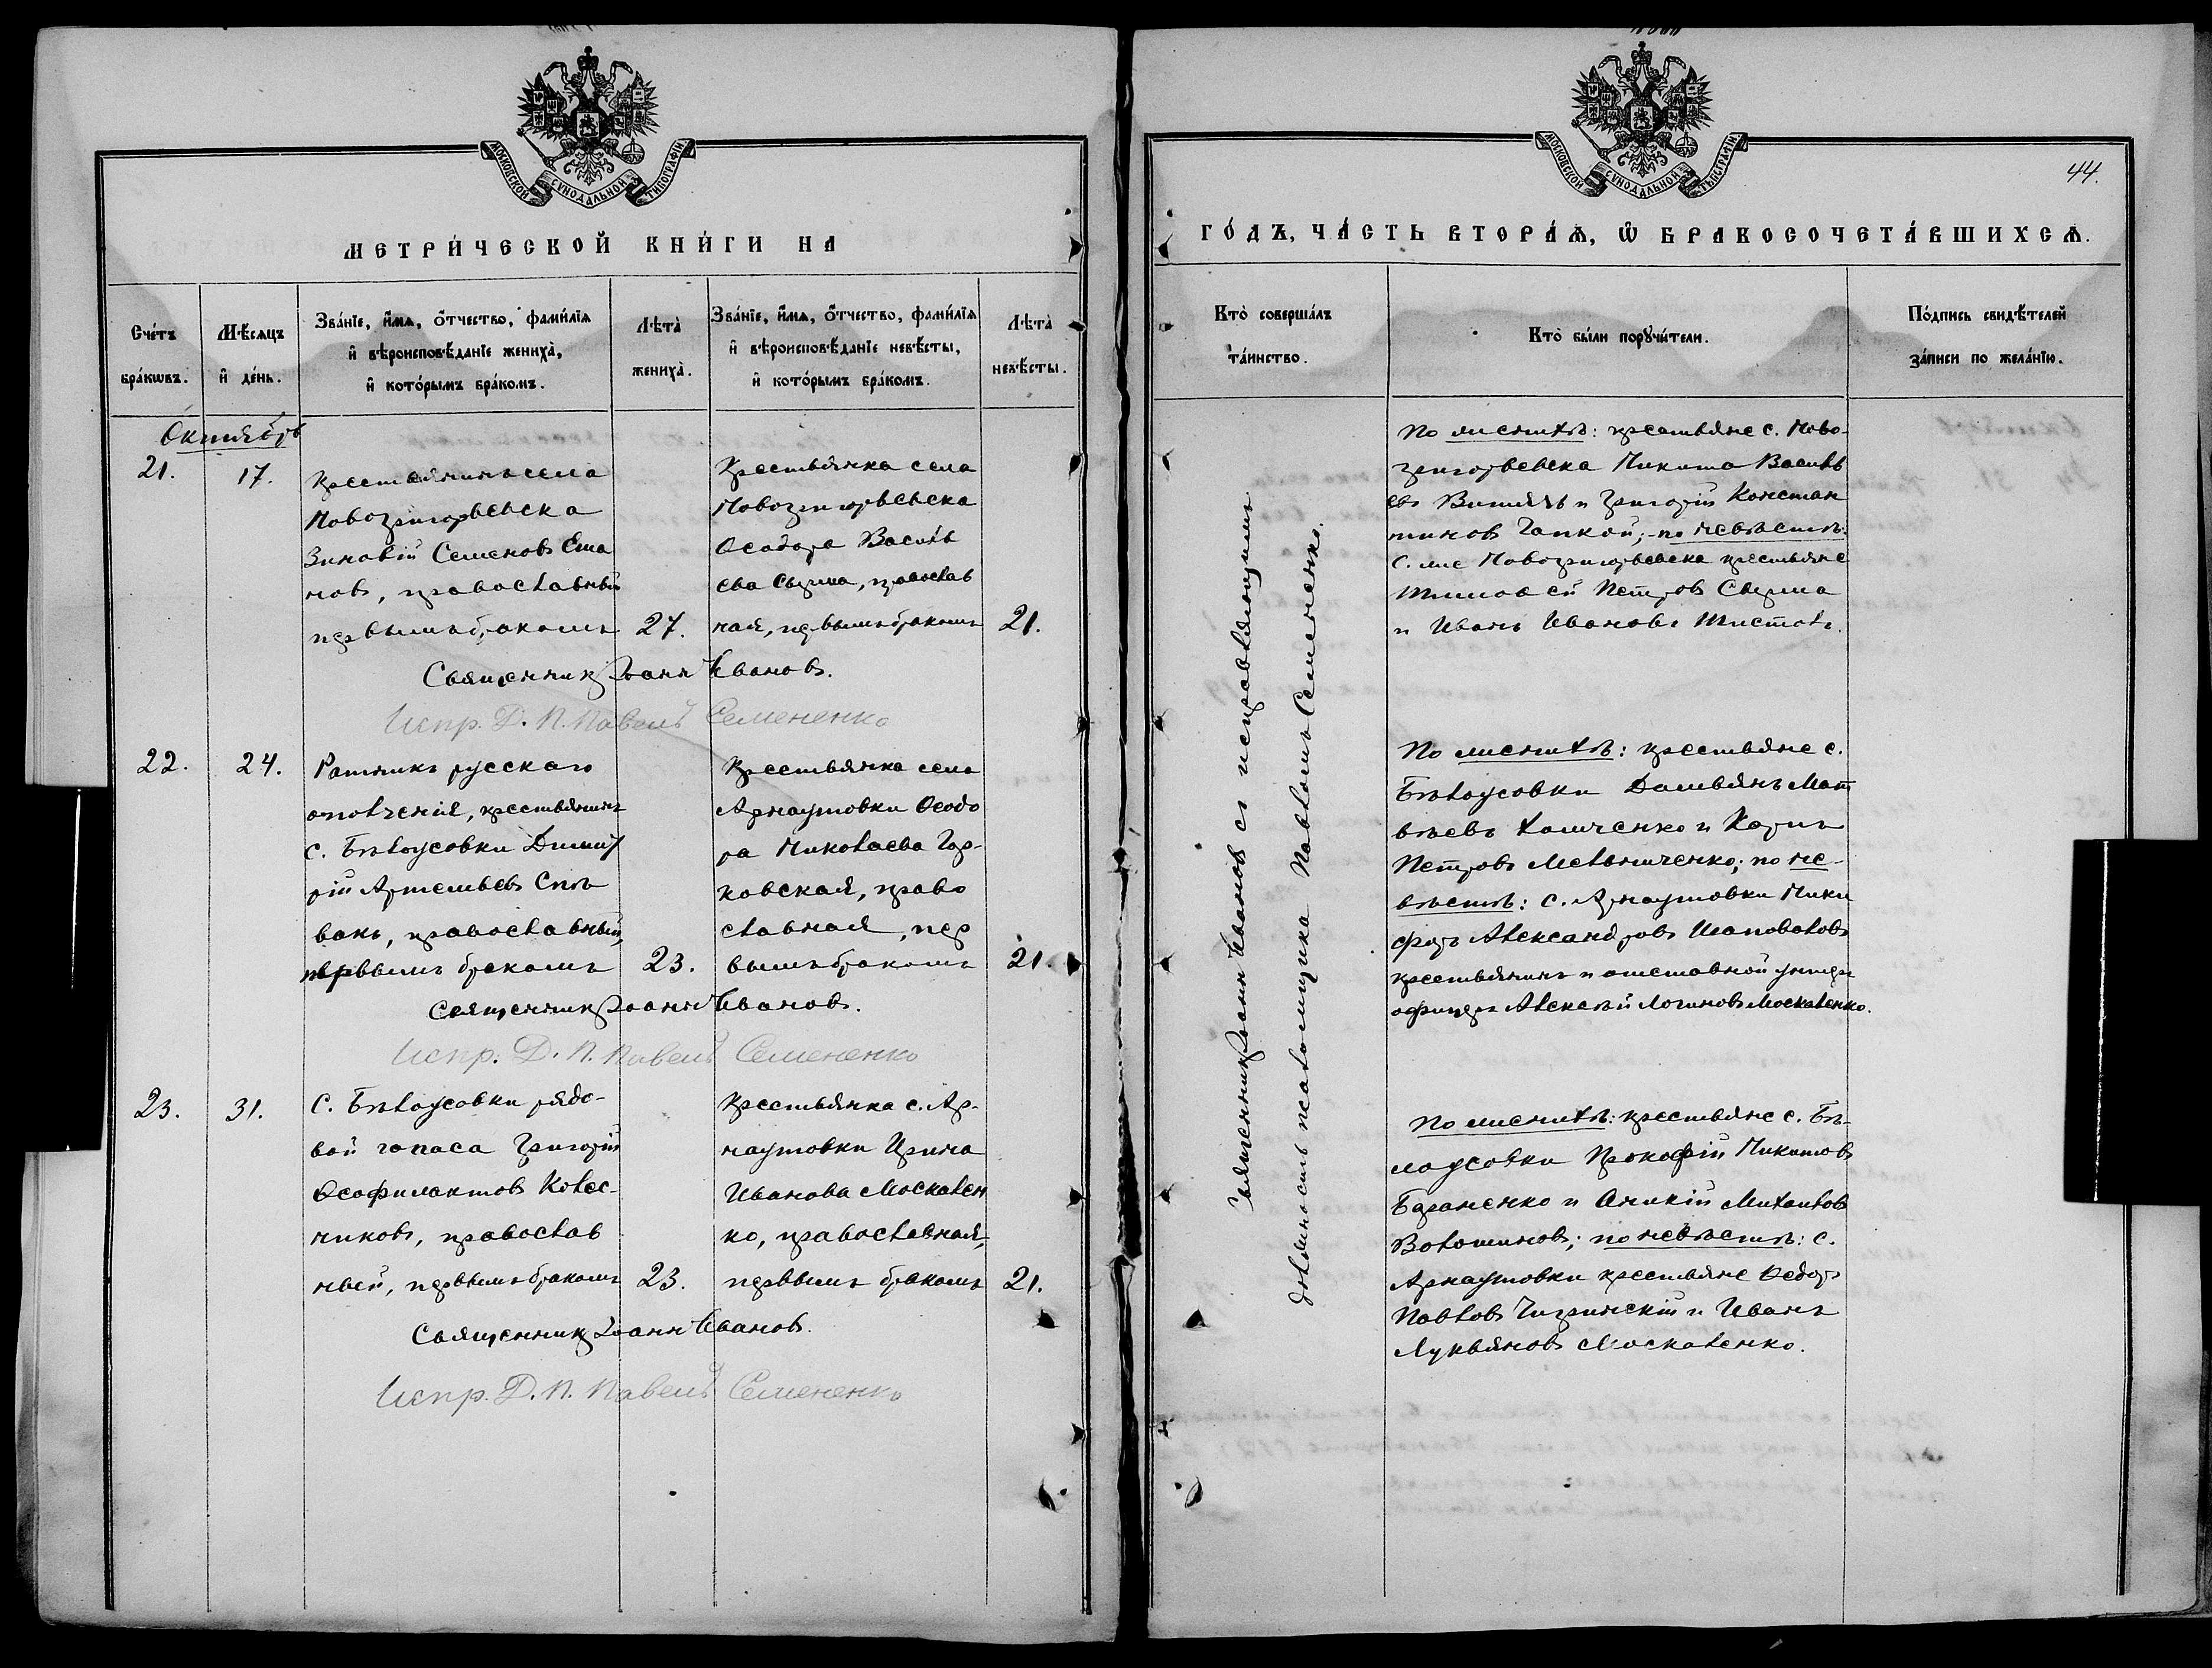 МОСКОВСКОЙ СУНОДАЛЬНОЙ ТИПОГРАФІИ
МЕТРИ́ЧЕСКОЙ КНИ́ГИ НА
Сче́тъ бра́кѡвъ.
Мѣ́сяцъ и҆ де́нь.
Зва́нїе, и҆́мѧ, ѻ҆́тчество, фами́лїѧ
и҆ вѣроисповѣ́данїе жениха̀,
и҆ кото́рымъ бра́комъ.
Лѣта̀ жениха̀.
Зва́нїе, и҆́мѧ, ѻ҆́тчество, фами́лїѧ
и҆ вѣроисповѣ́данїе невѣ́сты,
и҆ кото́рымъ бра́комъ.
Лѣта̀ невѣ́сты.
Октябрь
21.
17.
Крестьянинъ села
Новогригорьевска
Зиновій Семеновъ Ема
новъ, православный
первымъ бракомъ
27.
Крестьянка села
Новогригорьевска
Ѳеодора Василь
ева Сырма, православ
ная, первымъ бракомъ
21.
Священникъ Іоаннъ Ивановъ.
Испр. Д. П. Павелъ Семененко
22.
24.
Ратникъ русскаго
ополченія, крестьянинъ
с. Бѣлоусовки Димит
рій Артемьевъ Спѣ
вакъ, православный,
первымъ бракомъ
23.
Крестьянка села
Арнаутовки Ѳеодо
ра Николаева Гор-
ковская, право
славная, пер
вымъ бракомъ
21.
Священникъ Іоаннъ Ивановъ.
Испр. Д. П. Павелъ Семененко
23.
31.
С. Бѣлоусовки рядо-
вой запаса Григорій
Ѳеофилактовъ Колес-
никовъ, православ
ный, первымъ бракомъ
23.
Крестьянка с. Ар-
наутовки Ирина
Иванова Москален
ко, православная,
первымъ бракомъ
21.
Священникъ Іоаннъ Ивановъ.
Испр. Д. П. Павелъ Семененко
МОСКОВСКОЙ СУНОДАЛЬНОЙ ТИПОГРАФІИ
44.
ГО́ДЪ, ЧА́СТЬ ВТОРА́Ѧ, Ѡ҆ БРАКОСОЧЕТА́ВШИХСѦ.
Кто̀ соверша́лъ
та́инство.
Кто̀ бы́ли порꙋчи́тели.
По́дпись свидѣ́телей
за́писи по жела́нїю.
Священникъ Іоаннъ Ивановъ съ исправляющимъ
должность псаломщика Павломъ Семененко.
По женихѣ: крестьяне с. Ново-
григорьевска Никита Василь
евъ и Григорій Констан
тиновъ Гапкой; по невѣстѣ:
с. Новогригорьевска крестьяне
Тимоѳей Петровъ Сырма
и Иванъ Ивановъ
По женихѣ: крестьяне с.
Бѣлоусовки Дамьянъ Мат
вѣевъ Хомченко и Карпъ
Петровъ Мельниченко; по не-
вѣстѣ: с. Арнаутовки Ники
форъ Александровъ Шаповаловъ
крестьянинъ и отставной унтеръ
офицеръ Алексѣй Логиновъ Москаленко.
По женихѣ: крестьяне с. Бѣ-
лоусовки Прокофій Никитовъ
Бараненко и Аникій Михаиловъ
Волошиновъ; по невѣстѣ: с.
Арнаутовки крестьяне Ѳедоръ
Павловъ Чигринскій и Иванъ
Лукьяновъ Москаленко.